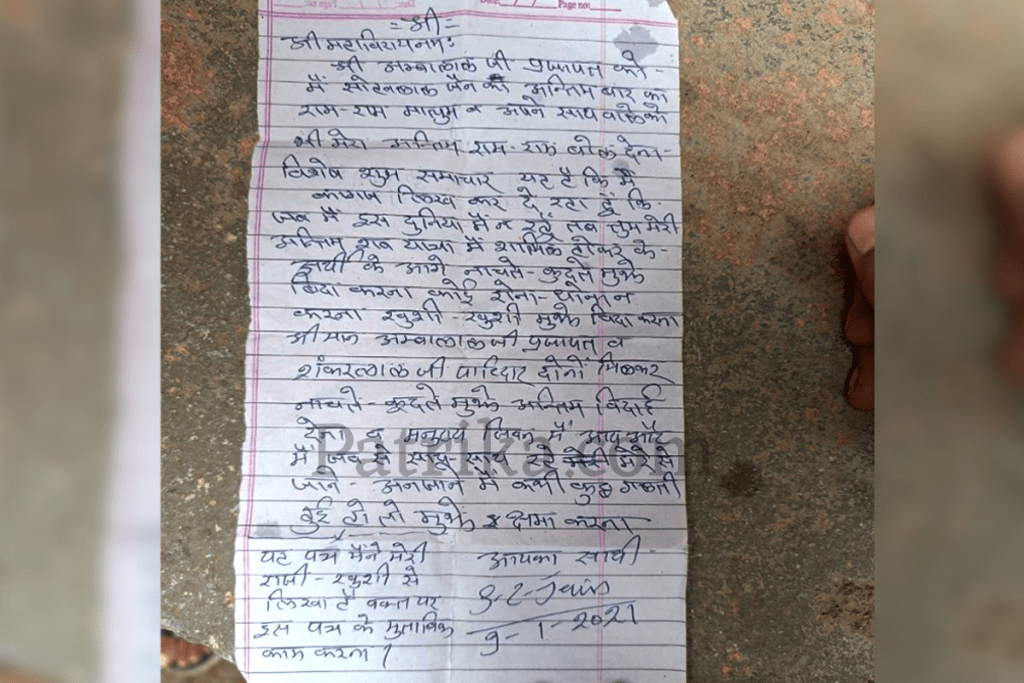 Date: / / Page no:
= श्री =
श्री महाविरायनमः
श्री अम्बालाल जी प्रजापत को -
मैं सोहनलाल जैन का अन्तिम बार का
राम-राम मालुम व अपने साथ वाले को
भी मेरा अन्तिम राम-राम बोल देना
विशेष शुभ समाचार यह है कि मैं
कागज लिख कर दे रहा हूं कि
जब मैं इस दुनिया मैं न रहूँ तब तुम मेरी
अन्तिम शव यात्रा में शामिल होकर के -
अर्थी के आगे नाचते-कुदते मुझे
बिदा करना कोई रोना-धोना न
करना खुशी-खुशी मुझे विदा करना
श्रीमान अम्बालाल जी प्रजापत व
शंकरलाल जी पाटिदार दोनों मिलकर
नाचते-कूदते मुझे अन्तिम विदाई
देना व में आप और
मैं जब से साथ साथ रहे मेरे से
जाने-अनजाने मैं कभी कुछ गलती
हुई हो तो मुझे क्षमा करना
यह पत्र मैंने मेरी
राजी-खुशी से
लिखा है वक्त पर
इस पत्र के मुताबिक
काम करना।
आपका साथी
S-L-Jain
9-1-2021
Patrika.com